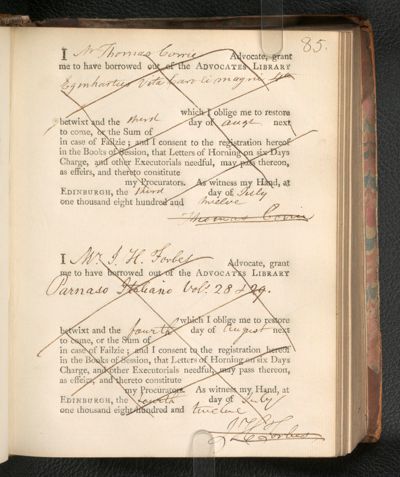 85.
I Mr Thomas Corrie Advocate, grant
me to have borrowed out of the ADVOCATES LIBRARY
Eginhartus Vita Caroli magni
which I oblige me to restore
betwixt and the third day of Augt next
to come, or the Sum of
in case of Failzie; and I consent to the registration hereof
in the Books of Session, that Letters of Horning on six Days
Charge, and other Executorials needful, may pass thereon,
as effeirs, and thereto constitute
my Procurators. As witness my Hand, at
EDINBURGH, the third day of July
one thousand eight hundred and twelve
Thomas Corrie
I Mr J. H. Forbes Advocate, grant
me to have borrowed out of the ADVOCATES LIBRARY
Parnaso Italiano Vol. 28 & 29.
which I oblige me to restore
betwixt and the fourth day of August next
to come, or the Sum of
in case of Failzie; and I consent to the registration hereof
in the Books of Session, that Letters of Horning on six Days
Charge, and other Executorials needful, may pass thereon,
as effeirs, and thereto constitute
my Procurators. As witness my Hand, at
EDINBURGH, the fourth day of July
one thousand eight hundred and twelve
J H Forbes